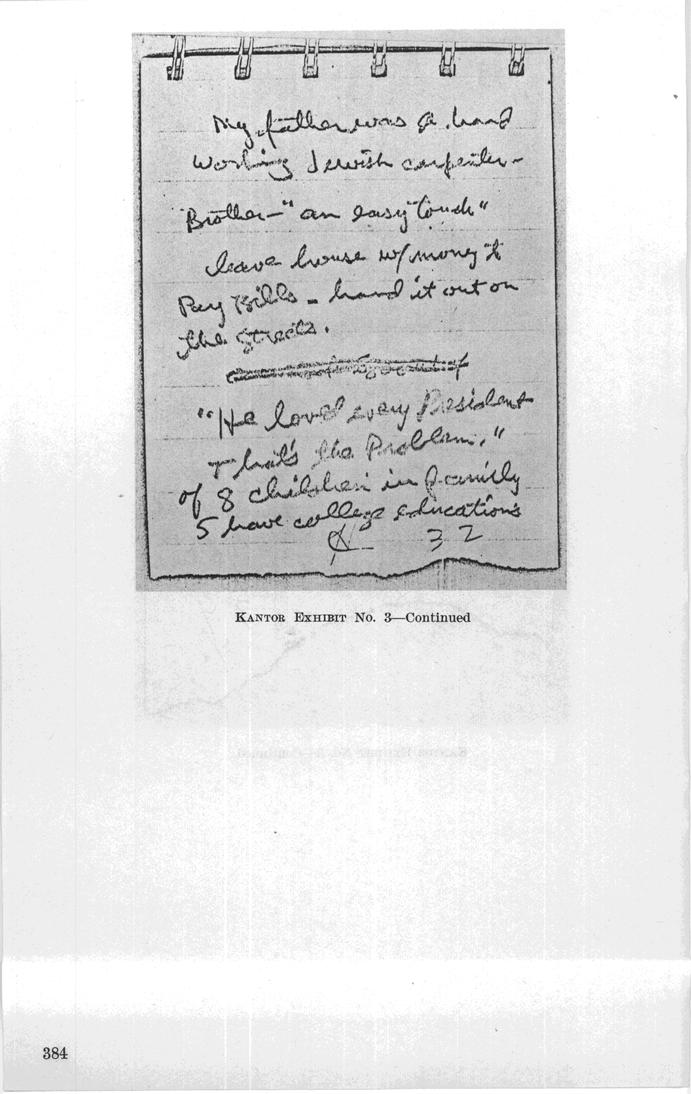 My father was a hard
working Jewish carpenter -
Brother - "an easy touch"
leave house w/ money to
Pay Bills - hand it out on
the streets.
"He loved every President
That's the Problem."
of 8 children in family
5 have college educations
32
KANTOR EXHIBIT No. 3—Continued
384